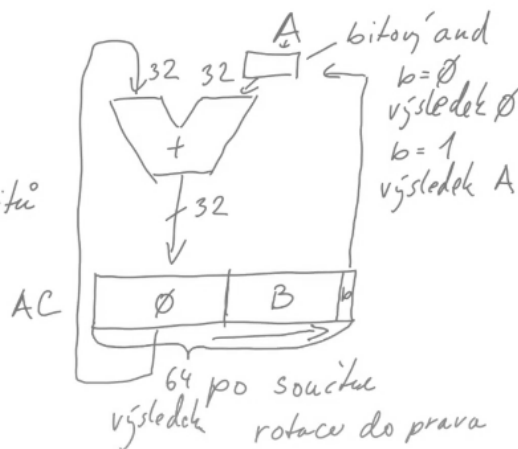 A
bitový and
32
32
b=Ø
výsledek Ø
b=1
výsledek A
+
32
itů
AC
Ø
B
b
64 po součtu
výsledek
rotace do prava